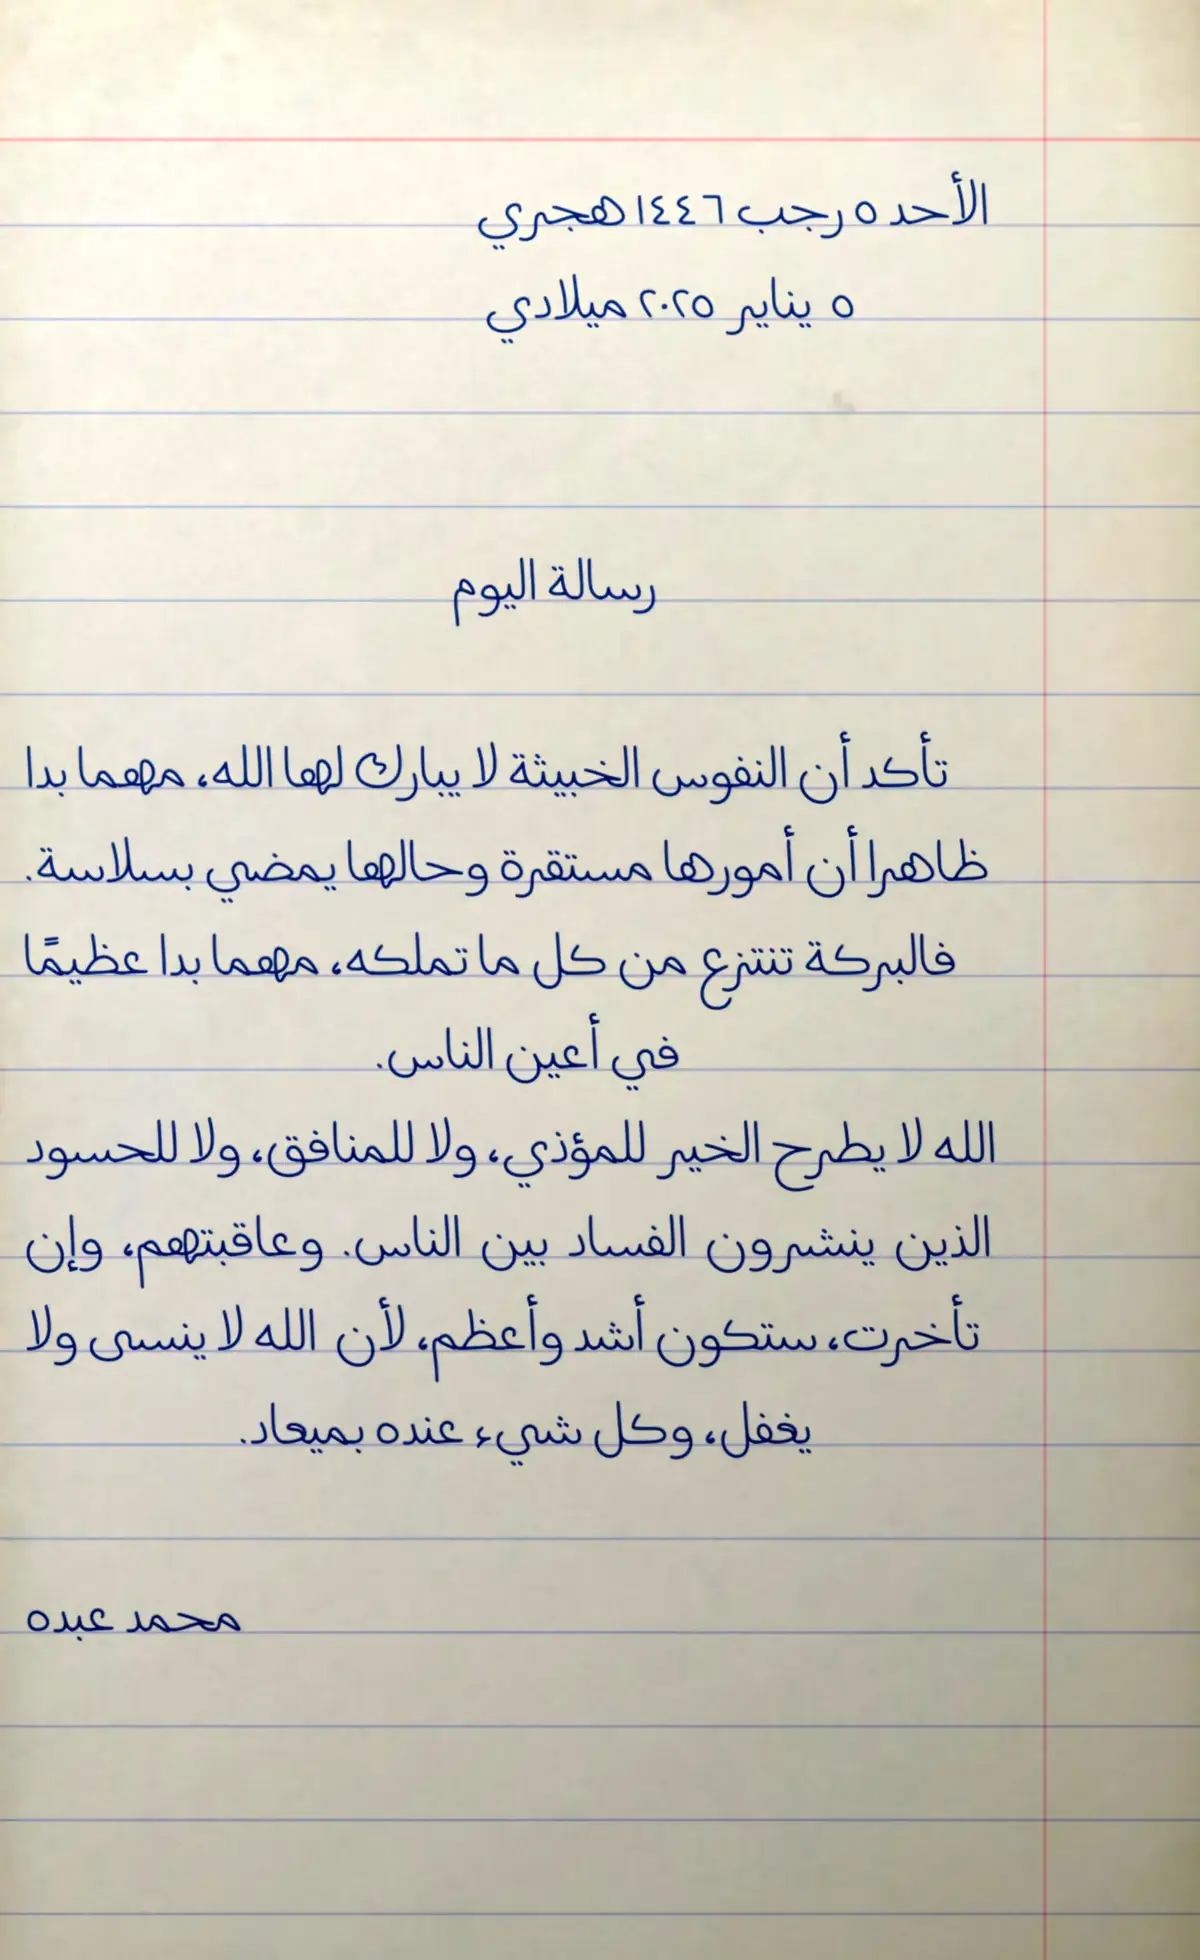 الأحد ٥ رجب ١٤٤٦ هجري
٥ يناير ٢٠٢٥ ميلادي
رسالة اليوم
تأكد أن النفوس الخبيثة لا يبارك لها الله، مهما بدا
ظاهرا أن أمورها مستقرة وحالها يمضي بسلاسة.
فالبركة تنتزع من كل ما تملكه، مهما بدا عظيمًا
في أعين الناس.
الله لا يطرح الخير للمؤذي، ولا للمنافق، ولا للحسود
الذين ينشرون الفساد بين الناس. وعاقبتهم، وإن
تأخرت، ستكون أشد وأعظم، لأن الله لا ينسى ولا
يغفل، وكل شيء عنده بميعاد.
محمد عبده